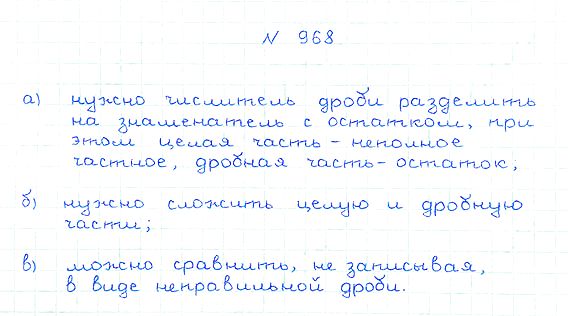 N 968
а) нужно числитель дроби разделить
на знаменатель с остатком, при
этом целая часть - неполное
частное, дробная часть - остаток;
б) нужно сложить целую и дробную
части;
в) можно сравнить, не записывая,
в виде неправильной дроби.